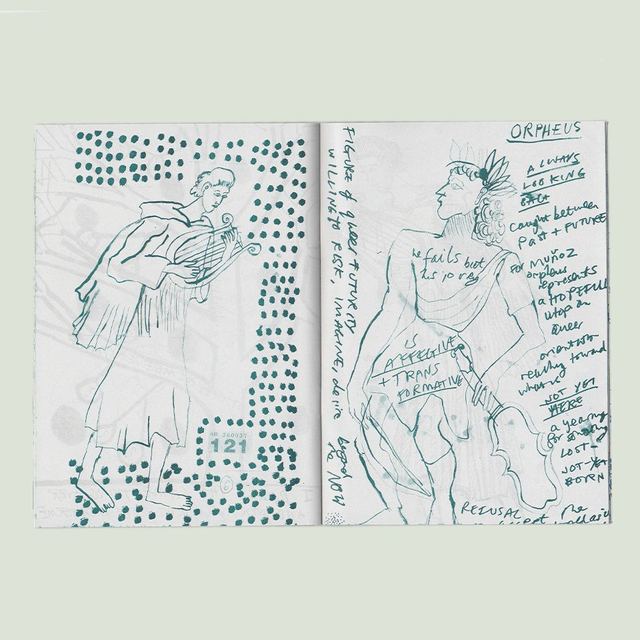 121
FIGURE of queer FUTURITY
WILLING TO RISK, IMAGINE, desire beyond
the NOW
ORPHEUS
ALWAYS
LOOKING
BACK
caught between
Past + FUTURE
FOR MUÑOZ
orpheus
represents
a HOPEFUL
utopian
queer
orientation
reaching toward
what is
NOT YET
HERE
a yearning
for something
LOST—
NOT-YET
BORN
he fails but
his journey
IS
AFFECTIVE
+ TRANS
FORMATIVE
REFUSAL